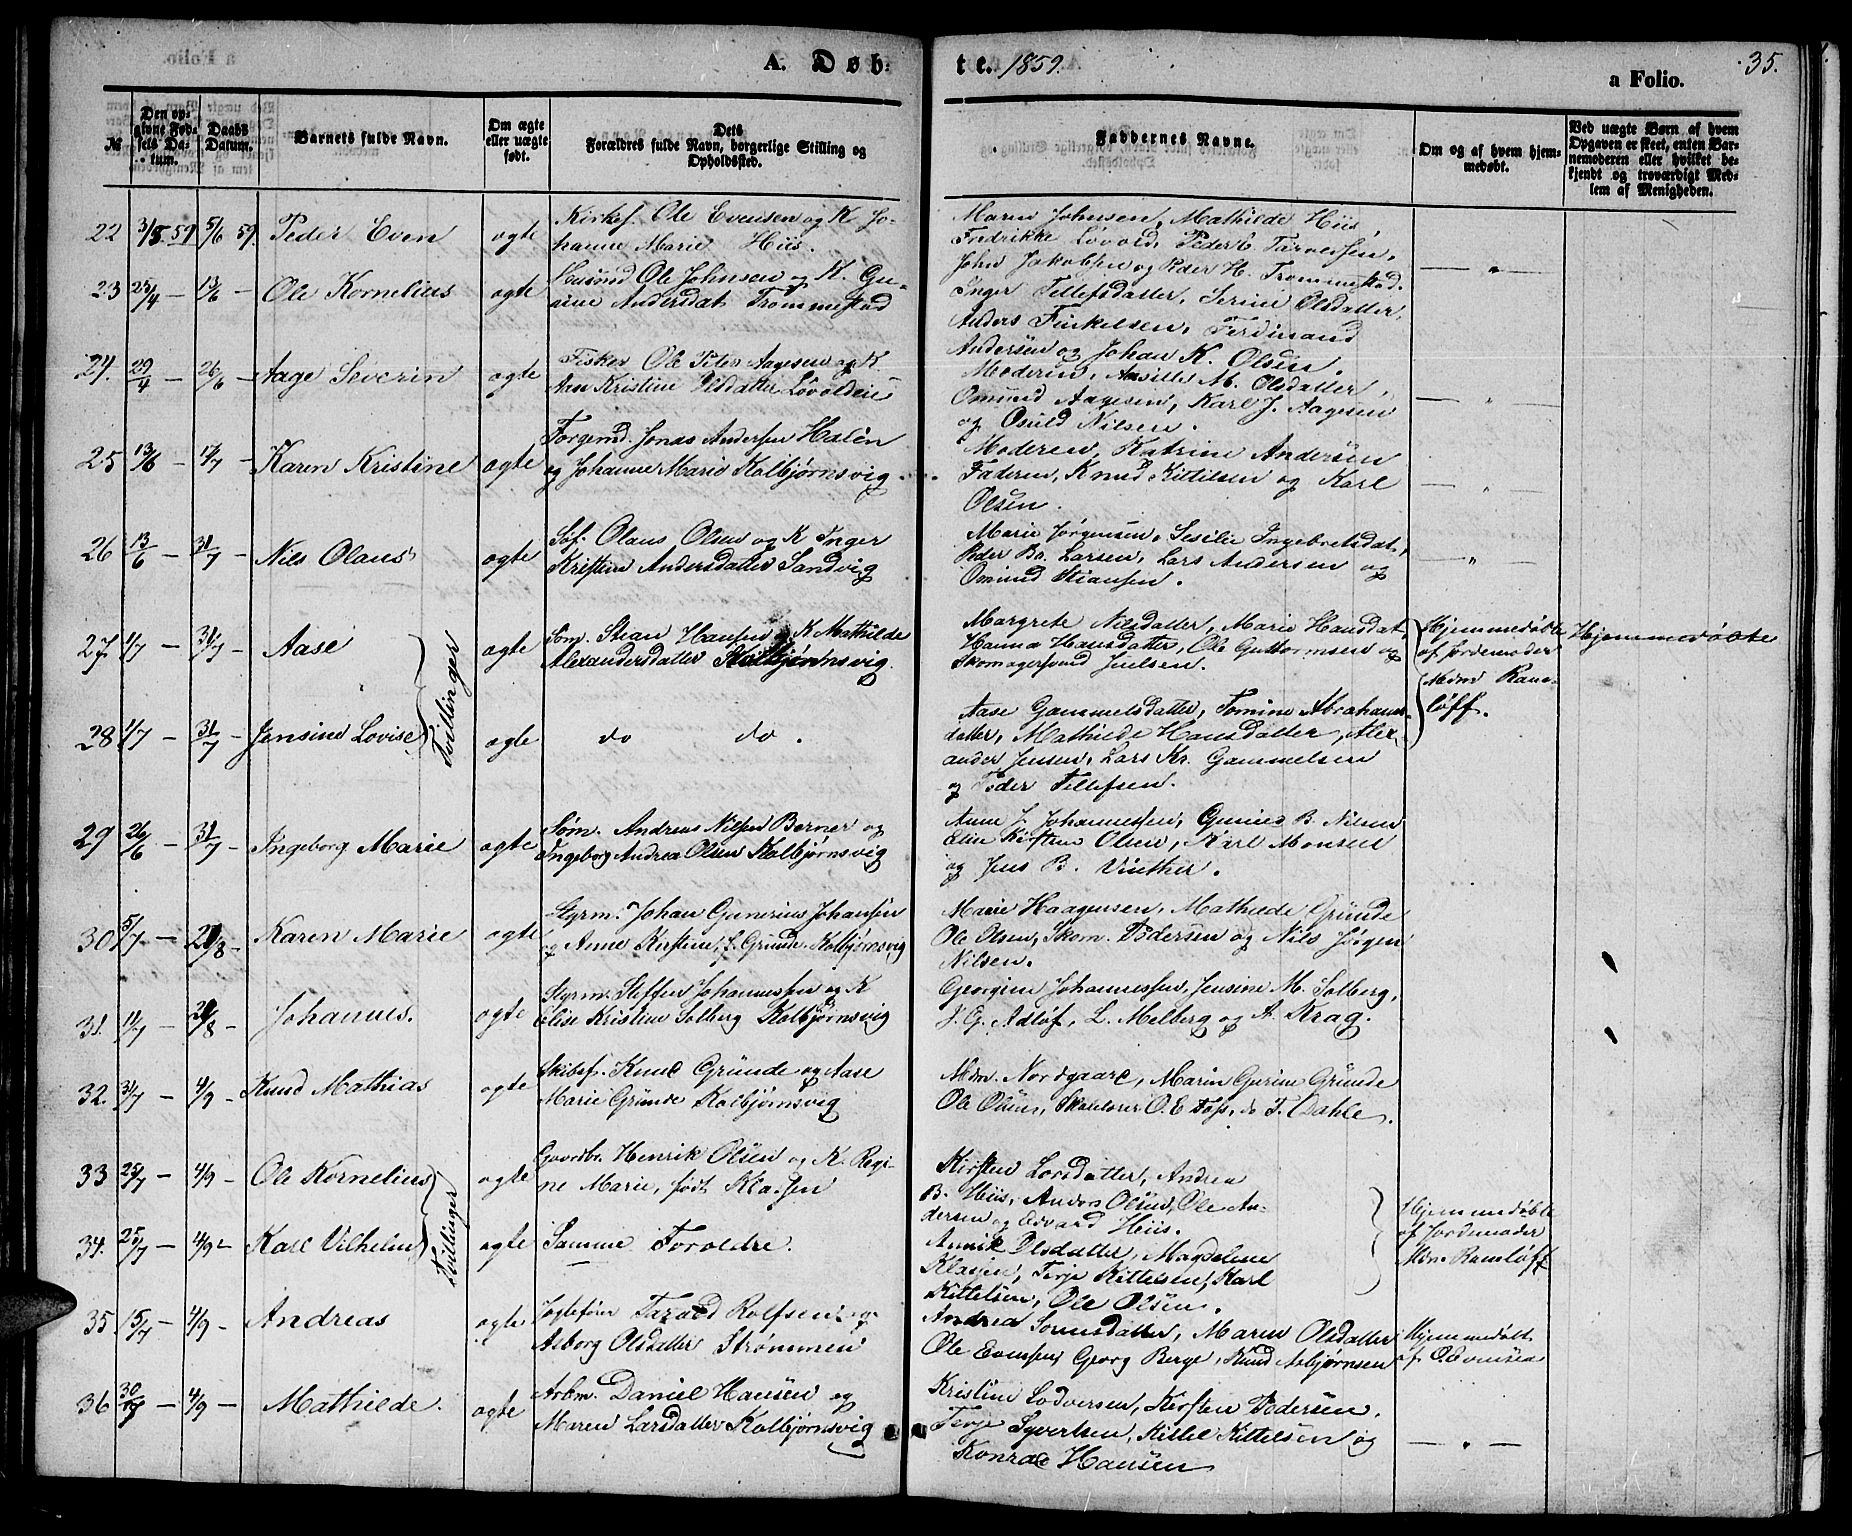 A. Døb- te. 1859.
35.
a Folio.
№
Den op-
givne Fød-
sels Da-
tum.
Daabs
Datum.
Barnets fulde Navn.
Om ægte
eller uægte
født.
Dets
Forældres fulde Navn, borgerlige Stilling og
Opholdssted.
Faddernes Navne.
Om og af hvem hjem-
medøbt.
Ved uægte Børn af hvem
Opgaven er skeet, enten Bar-
nemoderen eller hvilket be-
kjendt og troværdigt Med-
lem af Menigheden.
22 3/5. 59 5/6 59. Peder Even ægte
Kirkes. Ole Evensen og K Jo-
hanne Marie Hiis.
Maren Johnsen, Mathilde Hiis,
Fredrikke Løvold, Peder C. Tarvelsen,
John Jakobsen og Peder H. Trommestad.
23 25/4 — 13/6 — Ole Kornelius ægte
Husmd Ole Johnsen og K. Gu-
nine Andersdat. Trommestad
Inger Tellefsdatter, Serine Olsdatter,
Anders Finkelsen, Ferdinand
Andersen og Johan K. Olsen.
24. 29/4 — 26/6 — Aage Severin ægte
Fisker Ole Peter Aagesen og K
Ane Kristine Olsdatter Løvoldeie
Moderen, M. Olsdatter,
Omund Aagesen, Karl J. Aagesen
og Osuld Nilsen.
25 13/6 — 17/7 — Karen Kristine ægte
Tørgemd. Jonas Andersen Halén
og Johanne Marie Kolbjørnsvig.
Moderen, Katrine Andersen
Faderen, Knud Kittilsen og Karl
Olsen.
26 13/6 — 31/7 — Nils Olaus ægte
Søf. Olaus Olsen og K Inger
Kristine Andersdatter Sandvig
Marie Jørgensen, Sesilie Ingebretsdat,
Peder Bo. Larsen, Lars Andersen og
Omund Stiansen.
27. 11/7 — 31/7 — Aase ægte
Tvillinger
Søm. Stian Hansen og K Mathilde
Alexandersdatter Kolbjørnsvig.
Margrete Nilsdatter, Marie Hansdat,
Hanna Hansdatter, Ole Guttormsen og
Skomagersvend Juelsen.
Hjemmedøbte
af Jordemoder
Mdm Rams-
løff.
Hjemmedøbte
28 11/7 — 31/7 — Jensine Lovise ægte
do do.
Aase Gammelsdatter, Tomine Abrahams-
datter, Mathilde Hansdatter, Alex-
ander Jensen, Lars Kr. Gammelsen
og Peder Tellefsen.
29 26/6 — 31/7 — Ingeborg Marie ægte
Søm. Andreas Nilsen Berner og
Ingeborg Andrea Olsen Kolbjørnsvig
Anne J. Johannessen, Gunild B. Nilsen
Eline Kirstine Olsen, Karl Monsen
og Jens B. Vinther.
30 5/7 — 21/8 — Karen Marie ægte
Styrm. Johan Gunerius Johansen
og Anne Kirstine, f. Gründe. Kolbjørnsvig
Marie Haagensen, Mathilde Gründe
Ole Olsen, Skom. Pedersen og Nils Jørgen
Nilsen.
31. 11/7 — 21/8 — Johannes. ægte
Styrm. Steffen Johannessen og K
Elise Kristine Solberg Kolbjørnsvig
Georgine Johannessen, Jensine M. Solberg,
J. G. Adløf, L. Melberg og A. Krag.
32. 31/7 — 4/9 — Knud Mathias ægte
Skibsf. Knud Gründe og Aase
Marie Gründe Kolbjørnsvig
Mdm. Nordgaard, Maren Gurine Gründe
Ole Olsen, Skolelærer O. E Foss, do T. Dahle.
33 25/7 — 4/9 — Ole Kornelius ægte
Tvillinger
Gaardbr. Henrik Olsen og K. Regi-
ne Marie, født Klausen
Kirsten Larsdatter, Andrea
B. Hiis, Anders Olsen, Ole An-
dersen og Edvard Hiis.
Hjemmedøbte
af Jordemoder
Mdm. Ramsløff
34. 25/7 — 4/9 — Karl Vilhelm ægte
Samme Forældre.
Annik Olsdatter, Magdelene
Klausen, Terje Kittelsen, Karl
Kittelsen, Ole Olsen.
35. 15/7 — 4/9 — Andreas ægte
Jagtefører Tarald Rolfsen og
Asborg Olsdatter Strømmen
Andrea Sørensdatter, Maren Olsdatter
Ole Evensen, Georg Berge, Knud Asbjørnsen
Hjemmedøbt
af O. Evensen
36 30/7 — 4/9 — Mathilde. ægte
Arbm. Daniel Hansen og
Maren Larsdatter Kolbjørnsvig
Kristine Lodversen, Kirsten Pedersen,
Terje Syvertsen, Kittel Kittelsen og
Konrad Hansen